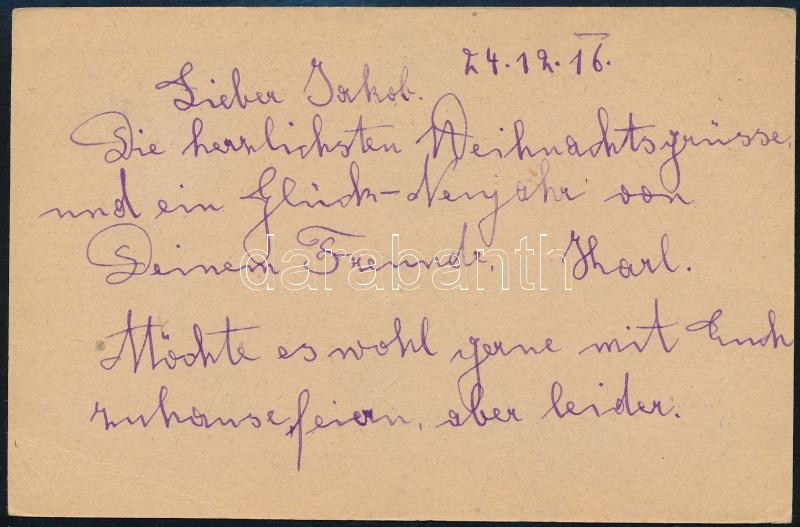 24.12.16.
Lieber Jakob.
Die herzlichsten Weihnachtsgrüsse,
und ein Glück-Neujahr von
Deinem Freunde. Karl.
Möchte es wohl gerne mit Euch
zuhause feiern, aber leider.
darabanth